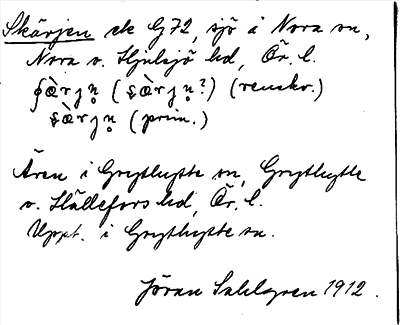 Skärjen ek G72, sjö å Nora sn,
Nora o. Hjulsjö hd, Ör. l.
(renskr.)
(prim.)
Även i Grythytte sn, Grythytte
o. Hällefors hd, Ör. l.
Uppt. i Grythytte sn.
Jöran Sahlgren 1912.